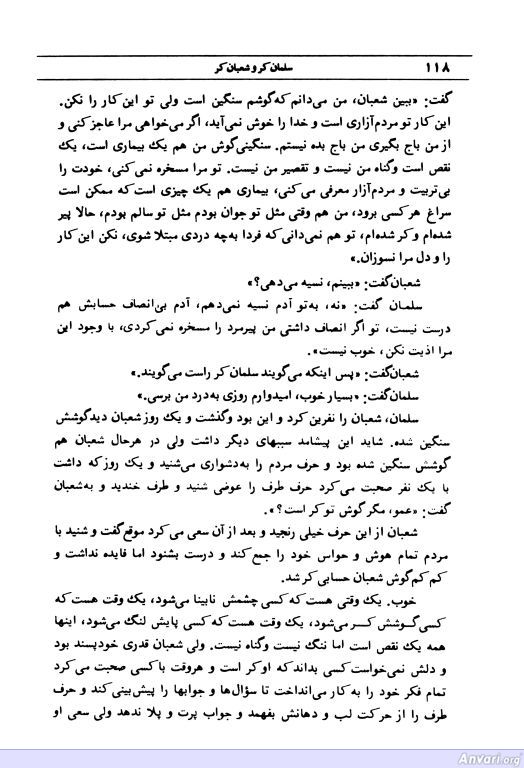 ۱۱۸ سلمان کر و شعبان کر
گفت: «ببین شعبان، من می‌دانم که گوشم سنگین است ولی تو این کار را نکن.
این کار تو مردم‌آزاری است و خدا را خوش نمی‌آید، اگر می‌خواهی مرا عاجز کنی و
از من باج بگیری من باج بده نیستم. سنگینی گوش من هم یک بیماری است، یک
نقص است و گناه من نیست و تقصیر من نیست. تو مرا مسخره نمی‌کنی، خودت را
بی‌تربیت و مردم‌آزار معرفی می‌کنی، بیماری هم یک چیزی است که ممکن است
سراغ هر کسی برود، من هم وقتی مثل تو جوان بودم مثل تو سالم بودم، حالا پیر
شده‌ام و کر شده‌ام، تو هم نمی‌دانی که فردا به‌چه دردی مبتلا شوی، نکن این کار
را و دل مرا نسوزان.»
شعبان گفت: «ببینم، نسیه می‌دهی؟»
سلمان گفت: «نه، به‌تو آدم نسیه نمی‌دهم، آدم بی‌انصاف حسابش هم
درست نیست، تو اگر انصاف داشتی من پیرمرد را مسخره نمی‌کردی، با وجود این
مرا اذیت نکن، خوب نیست».
شعبان گفت: «پس اینکه می‌گویند سلمان کر راست می‌گویند.»
سلمان گفت: «بسیار خوب، امیدوارم روزی به‌درد من برسی.»
سلمان، شعبان را نفرین کرد و این بود و گذشت و یک روز شعبان دید گوشش
سنگین شده. شاید این پیشامد سببهای دیگر داشت ولی در هرحال شعبان هم
گوشش سنگین شده بود و حرف مردم را به‌دشواری می‌شنید و یک روز که داشت
با یک نفر صحبت می‌کرد حرف طرف را عوضی شنید و طرف خندید و به‌شعبان
گفت: «عمو، مگر گوش تو کر است؟».
شعبان از این حرف خیلی رنجید و بعد از آن سعی می‌کرد موقع گفت و شنید با
مردم تمام هوش و حواس خود را جمع کند و درست بشنود اما فایده نداشت و
کم کم گوش شعبان حسابی کر شد.
خوب. یک وقتی هست که کسی چشمش نابینا می‌شود، یک وقت هست که
کسی گوشش کر می‌شود، یک وقت هست که کسی پایش لنگ می‌شود، اینها
همه یک نقص است اما ننگ نیست و گناه نیست. ولی شعبان قدری خودپسند بود
و دلش نمی‌خواست کسی بداند که او کر است و هروقت با کسی صحبت می‌کرد
تمام فکر خود را به کار می‌انداخت تا سؤال‌ها و جوابها را پیش‌بینی کند و حرف
طرف را از حرکت لب و دهانش بفهمد و جواب پرت و پلا ندهد ولی سعی او
Anvari.org